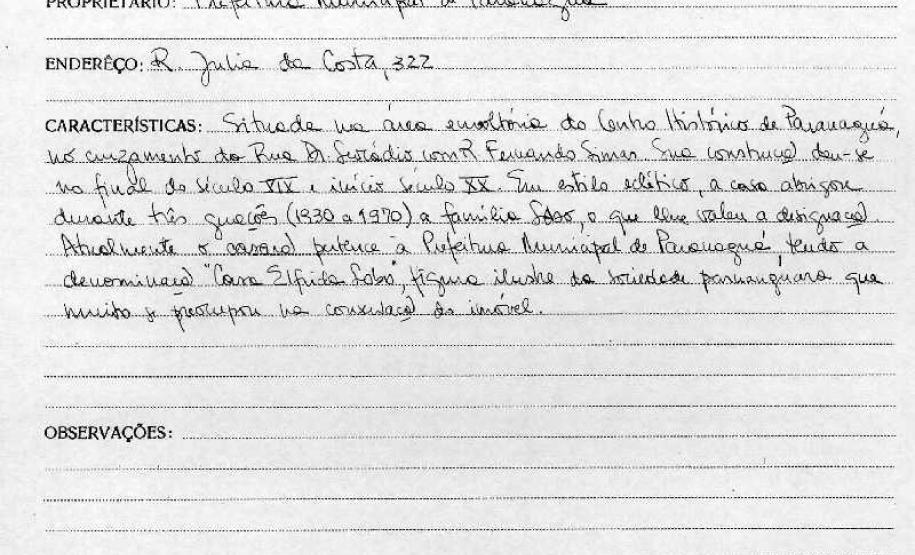 PROPRIETÁRIO: Prefeitura Municipal de Paranaguá
ENDERÊÇO: R. Julia da Costa, 322
CARACTERÍSTICAS: Situada na área envoltória do Centro Histórico de Paranaguá,
no cruzamento da Rua Dr. com R Fernando Simas. Sua construçaõ deu-se
no final do século XIX e início século XX. Em estilo eclético, a casa abrigou
durante três gerações (1930 a 1970) a família Lobo, o que lhe valeu a designaçaõ.
Atualmente o casaraõ pertence à Prefeitura Municipal de Paranaguá, tendo a
denominaçaõ "Casa Elfrida Lobo", figura ilustre da sociedade parnanguara que
muito se preocupou na conservaçaõ do imóvel.
OBSERVAÇÕES: